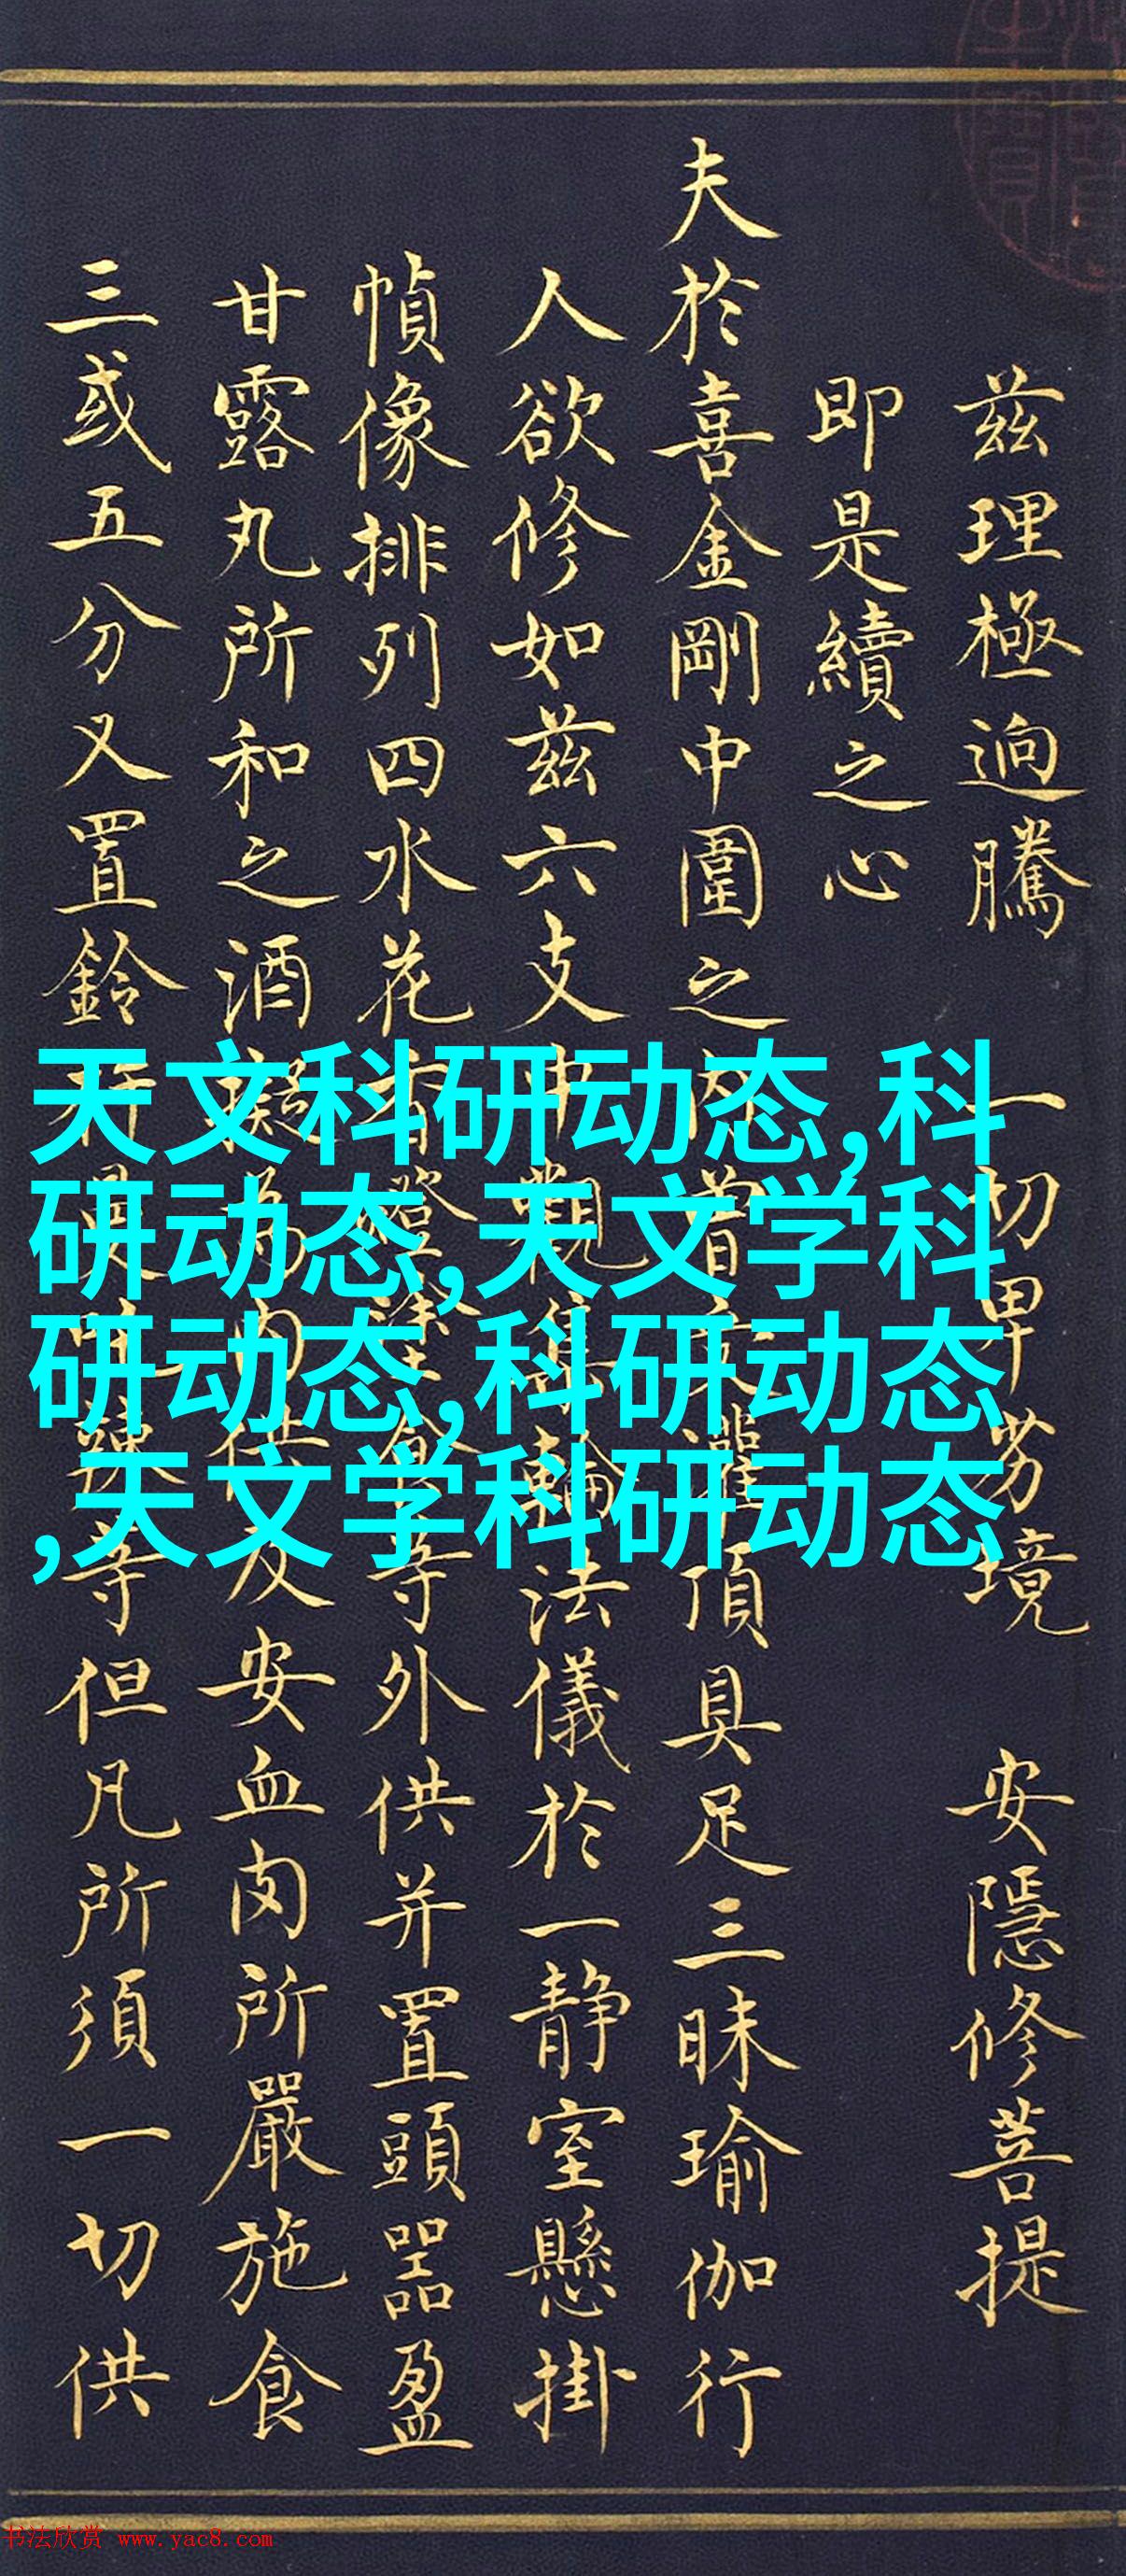 兹理極逈騰 一切卑劳境 安隱修菩提
即是續之心
夫於喜金剛中圍之内曾受灌頂具足三昧瑜伽行
人欲修如兹六支中觀集輪法儀於一静室懸掛
幀像排列四水花香燈塗食等外供并置頭器盈
甘露丸所和之酒為内供及安血肉所嚴施食
三或五分又置鈴杵等但凡所須一切供
天文科研动态,科
研动态,天文学科
研动态,科研动态
,天文学科研动态
书法欣赏 www.yac8.com